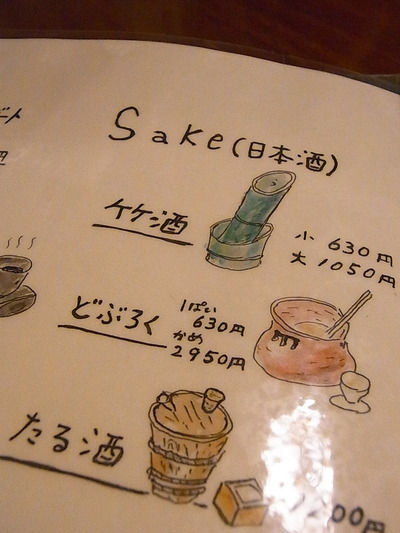 Sake(日本酒)
竹酒
小 630円
大 1050円
どぶろく
1ぱい
630円
かめ
2950円
たる酒
円